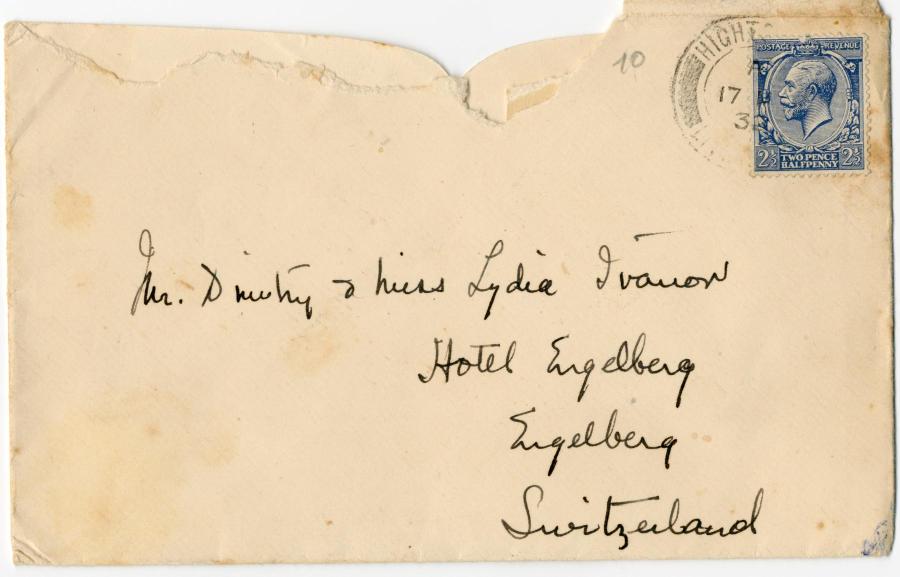 10
HIGHT
17
3
POSTAGE REVENUE
2½ TWO PENCE HALFPENNY 2½
Mr. Dimitry & Miss Lydia Ivanow
Hotel Engelberg
Engelberg
Switzerland